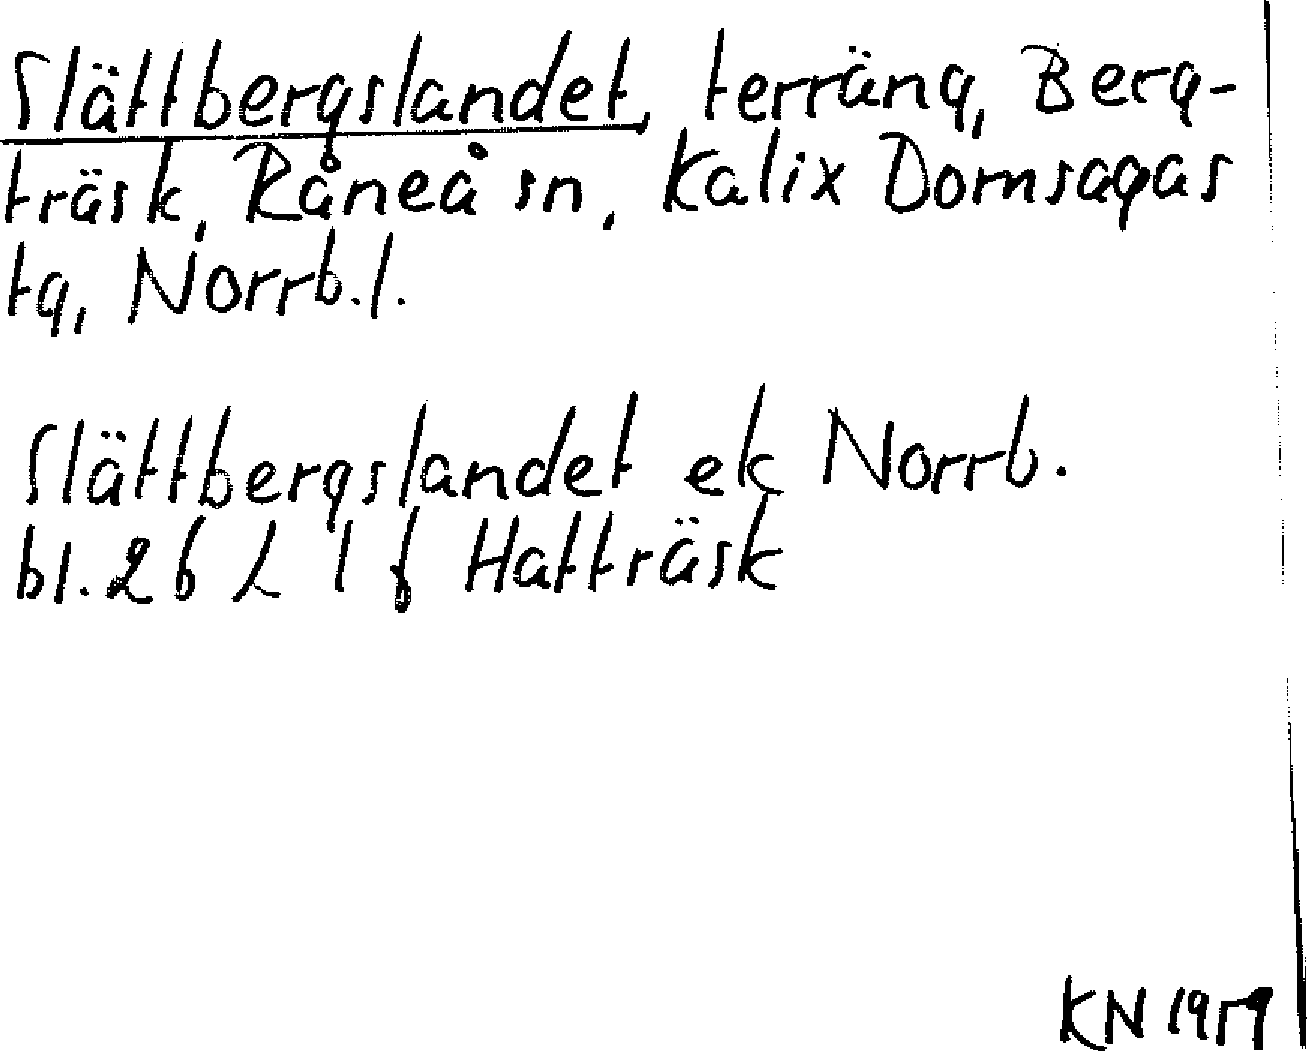 Slättbergslandet, terräng, Berg-
träsk, Råneå sn, Kalix Domsagas
tg, Norrb.l.
Slättbergslandet ek Norrb.
bl. 26 L 1 f Hatträsk
KN 1959